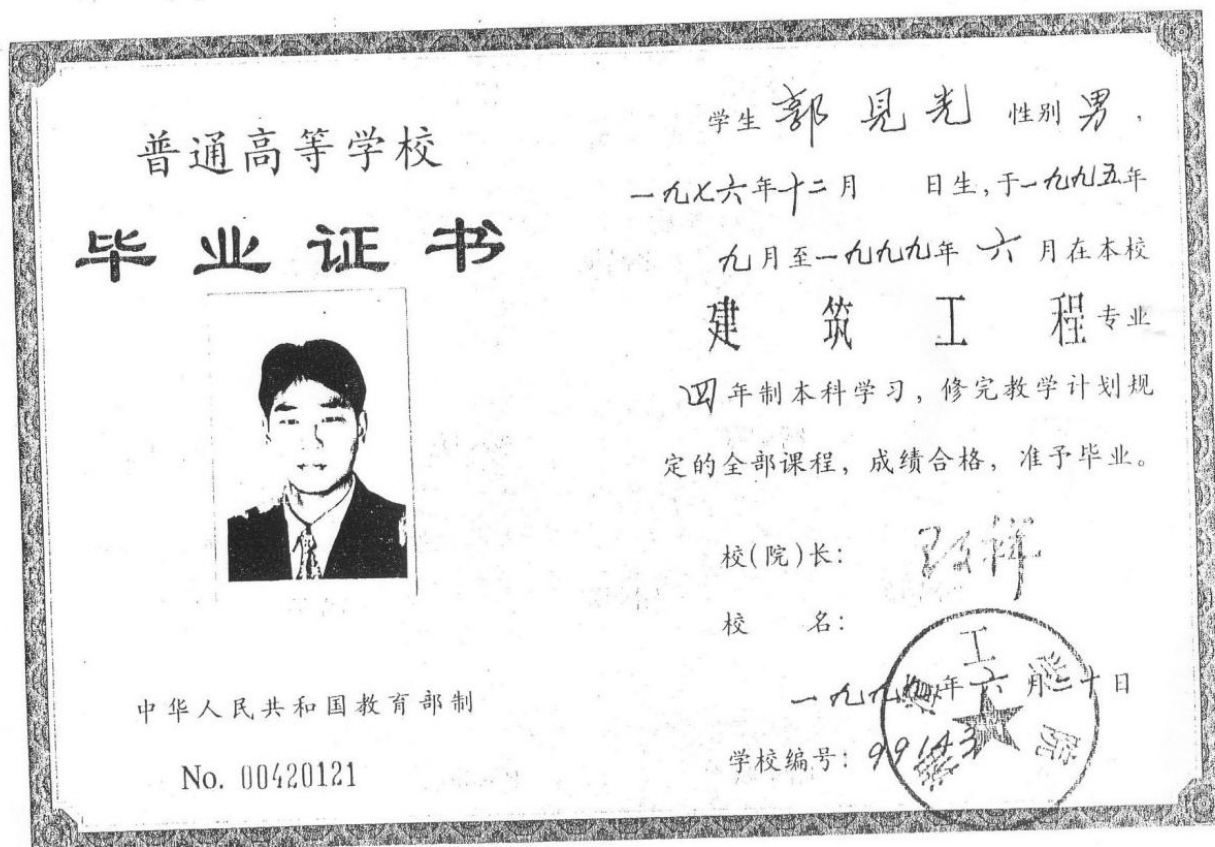 普通高等学校
毕业证书
中华人民共和国教育部制
No. 00420121
学生 郭见光 性别 男,
一九七六年十二月 日生,于一九九五年
九月至一九九九年 六 月在本校
建筑工程专业
四年制本科学习,修完教学计划规
定的全部课程,成绩合格,准予毕业。
校(院)长:
校 名:
一九九 年六月二十日
学校编号:99143
工学院